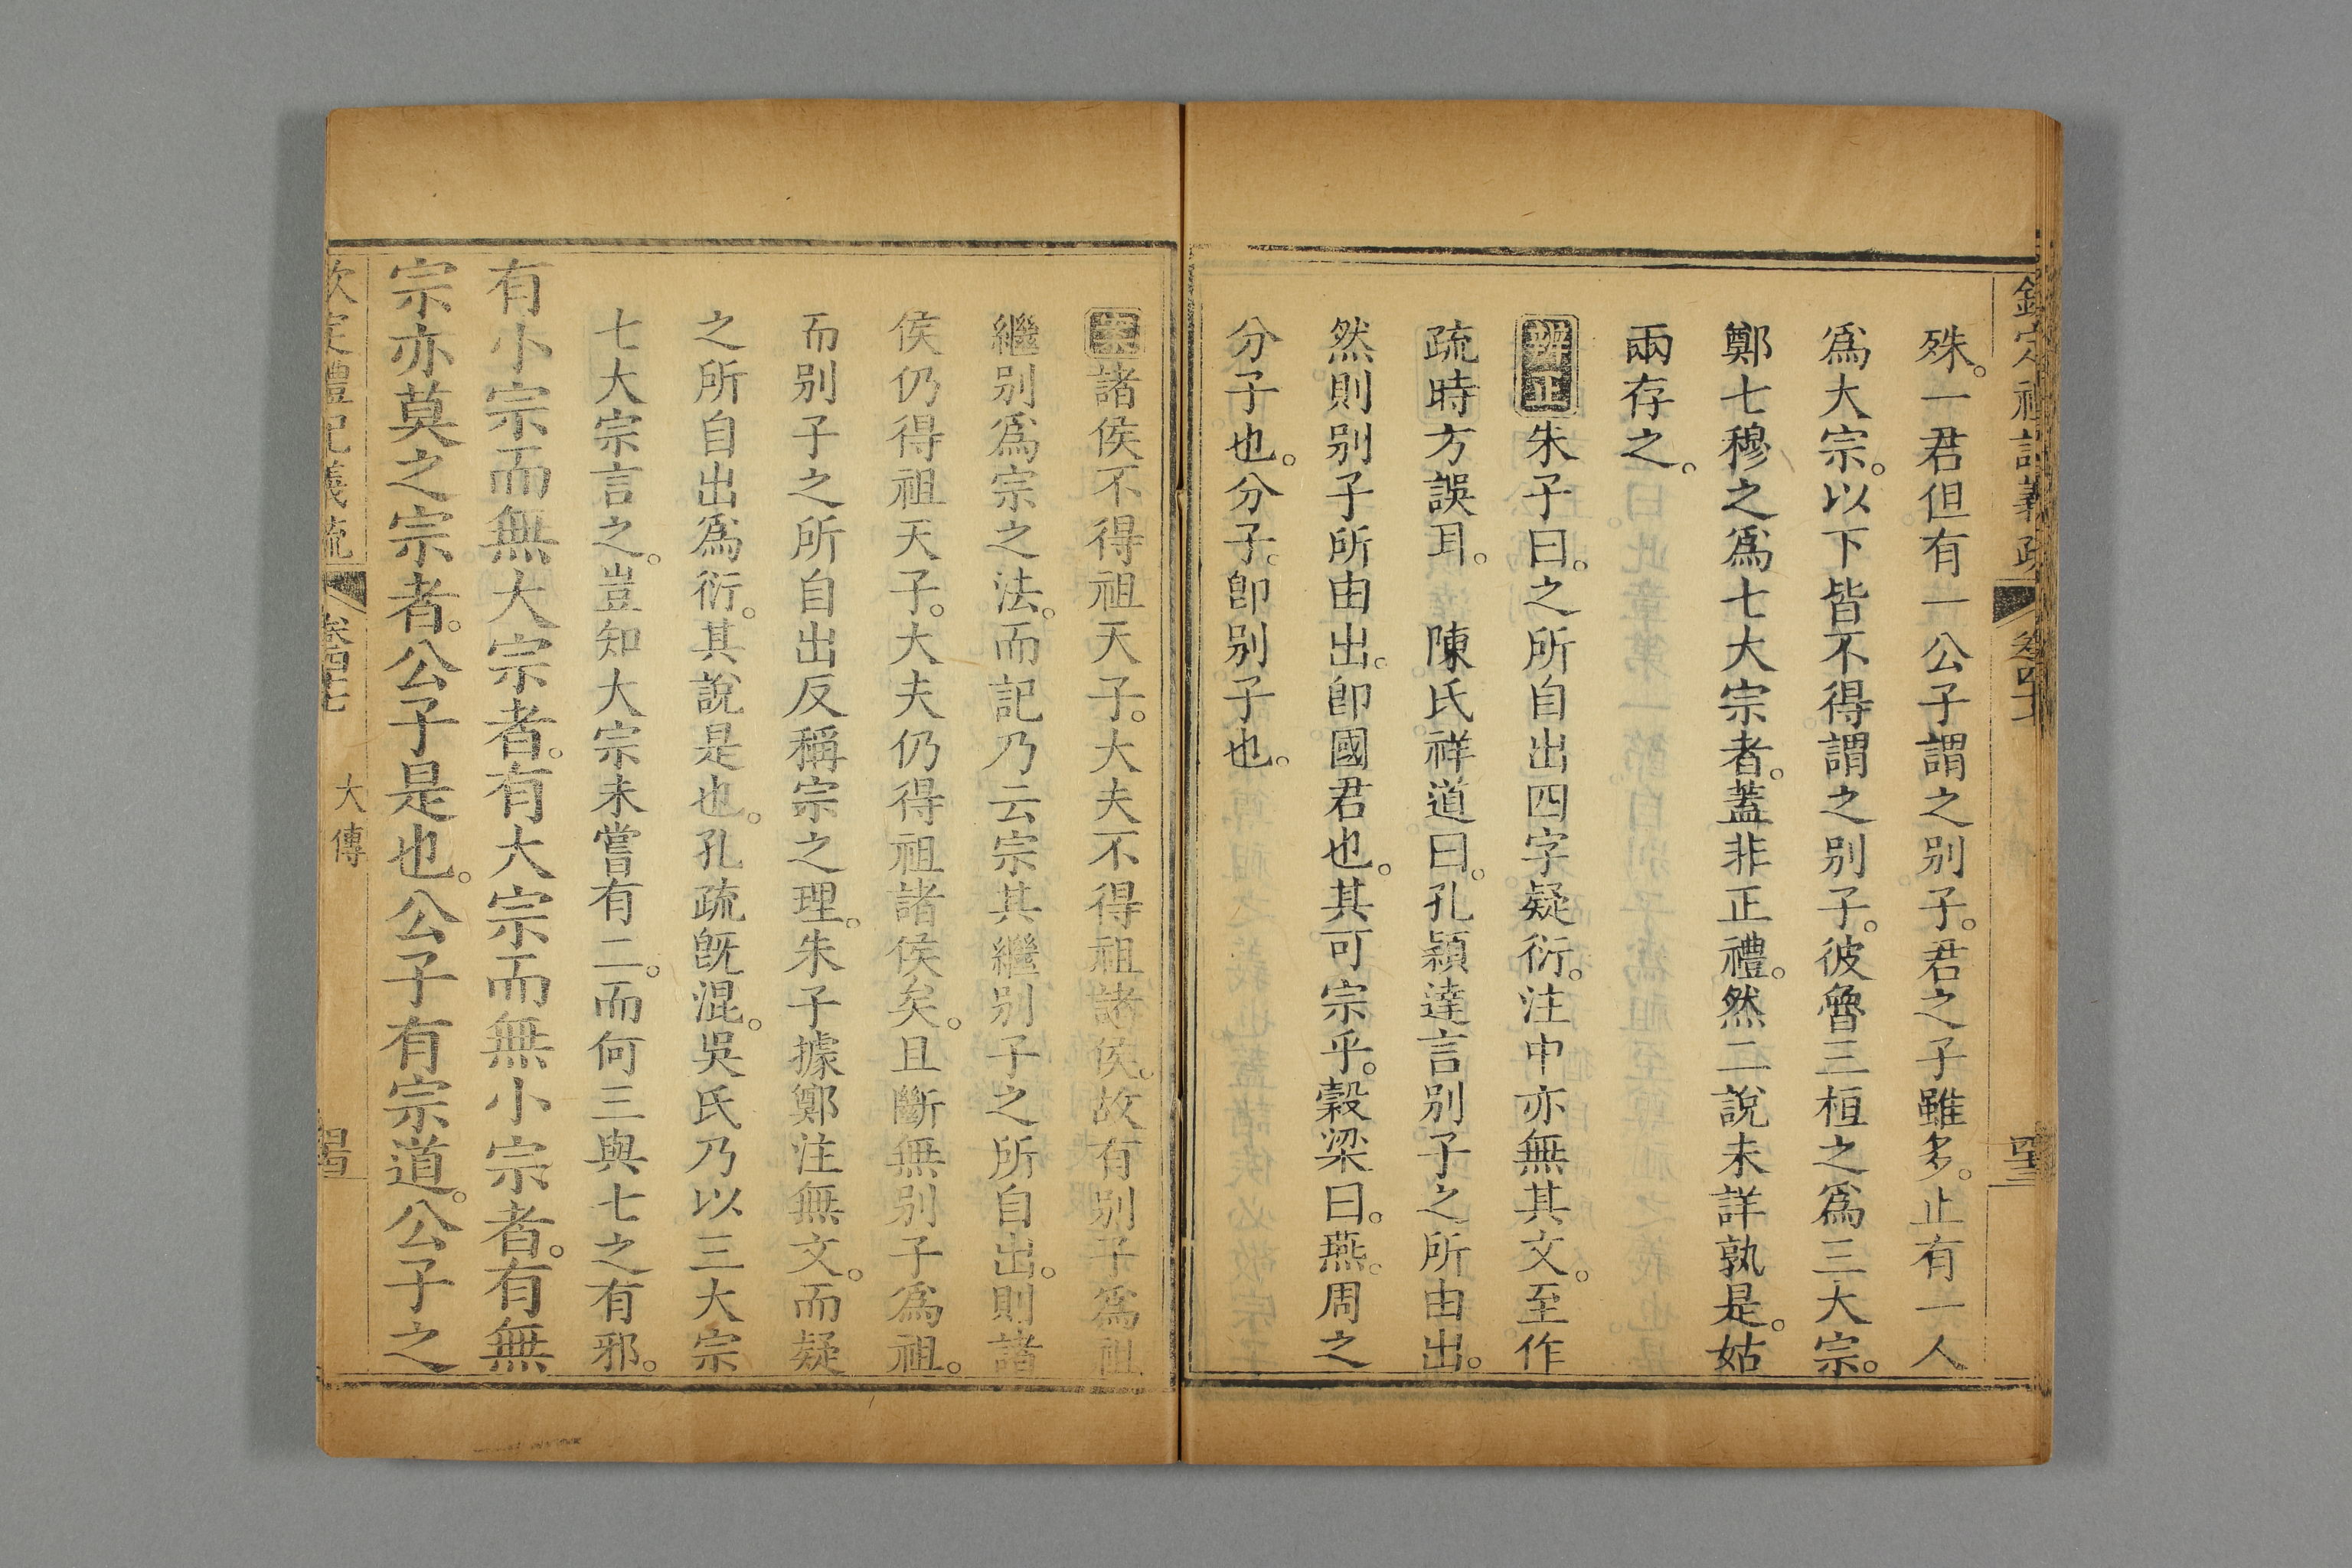 殊。一君但有一公子謂之别子。君之子雖多。止有一人
爲大宗。以下皆不得謂之别子。彼魯三桓之爲三大宗。
鄭七穆之爲七大宗者。蓋非正禮。然二說未詳孰是。姑
兩存之。
辨正朱子曰。之所自出四字疑衍。注中亦無其文。至作
疏時方誤耳。 陳氏祥道曰。孔穎達言別子之所由出。
然則别子所由出。卽國君也。其可宗乎。穀梁曰。燕。周之
分子也。分子。卽别子也。
案諸侯不得祖天子。大夫不得祖諸侯。故有别子爲祖
繼别爲宗之法。而記乃云宗其繼别子之所自出。則諸
侯仍得祖天子。大夫仍得祖諸侯矣。且斷無别子爲祖。
而别子之所自出反稱宗之理。朱子據鄭注無文。而疑
之所自出爲衍。其說是也。孔疏旣混。吳氏乃以三大宗
七大宗言之。豈知大宗未嘗有二。而何三與七之有邪。
有小宗而無大宗者。有大宗而無小宗者。有無
宗亦莫之宗者。公子是也。公子有宗道。公子之
欽定禮記義疏 卷四十七 大傳